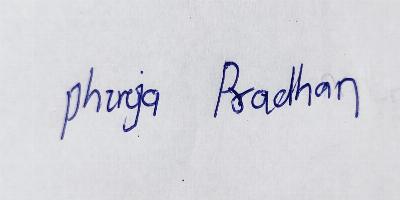 phurja Pradhan